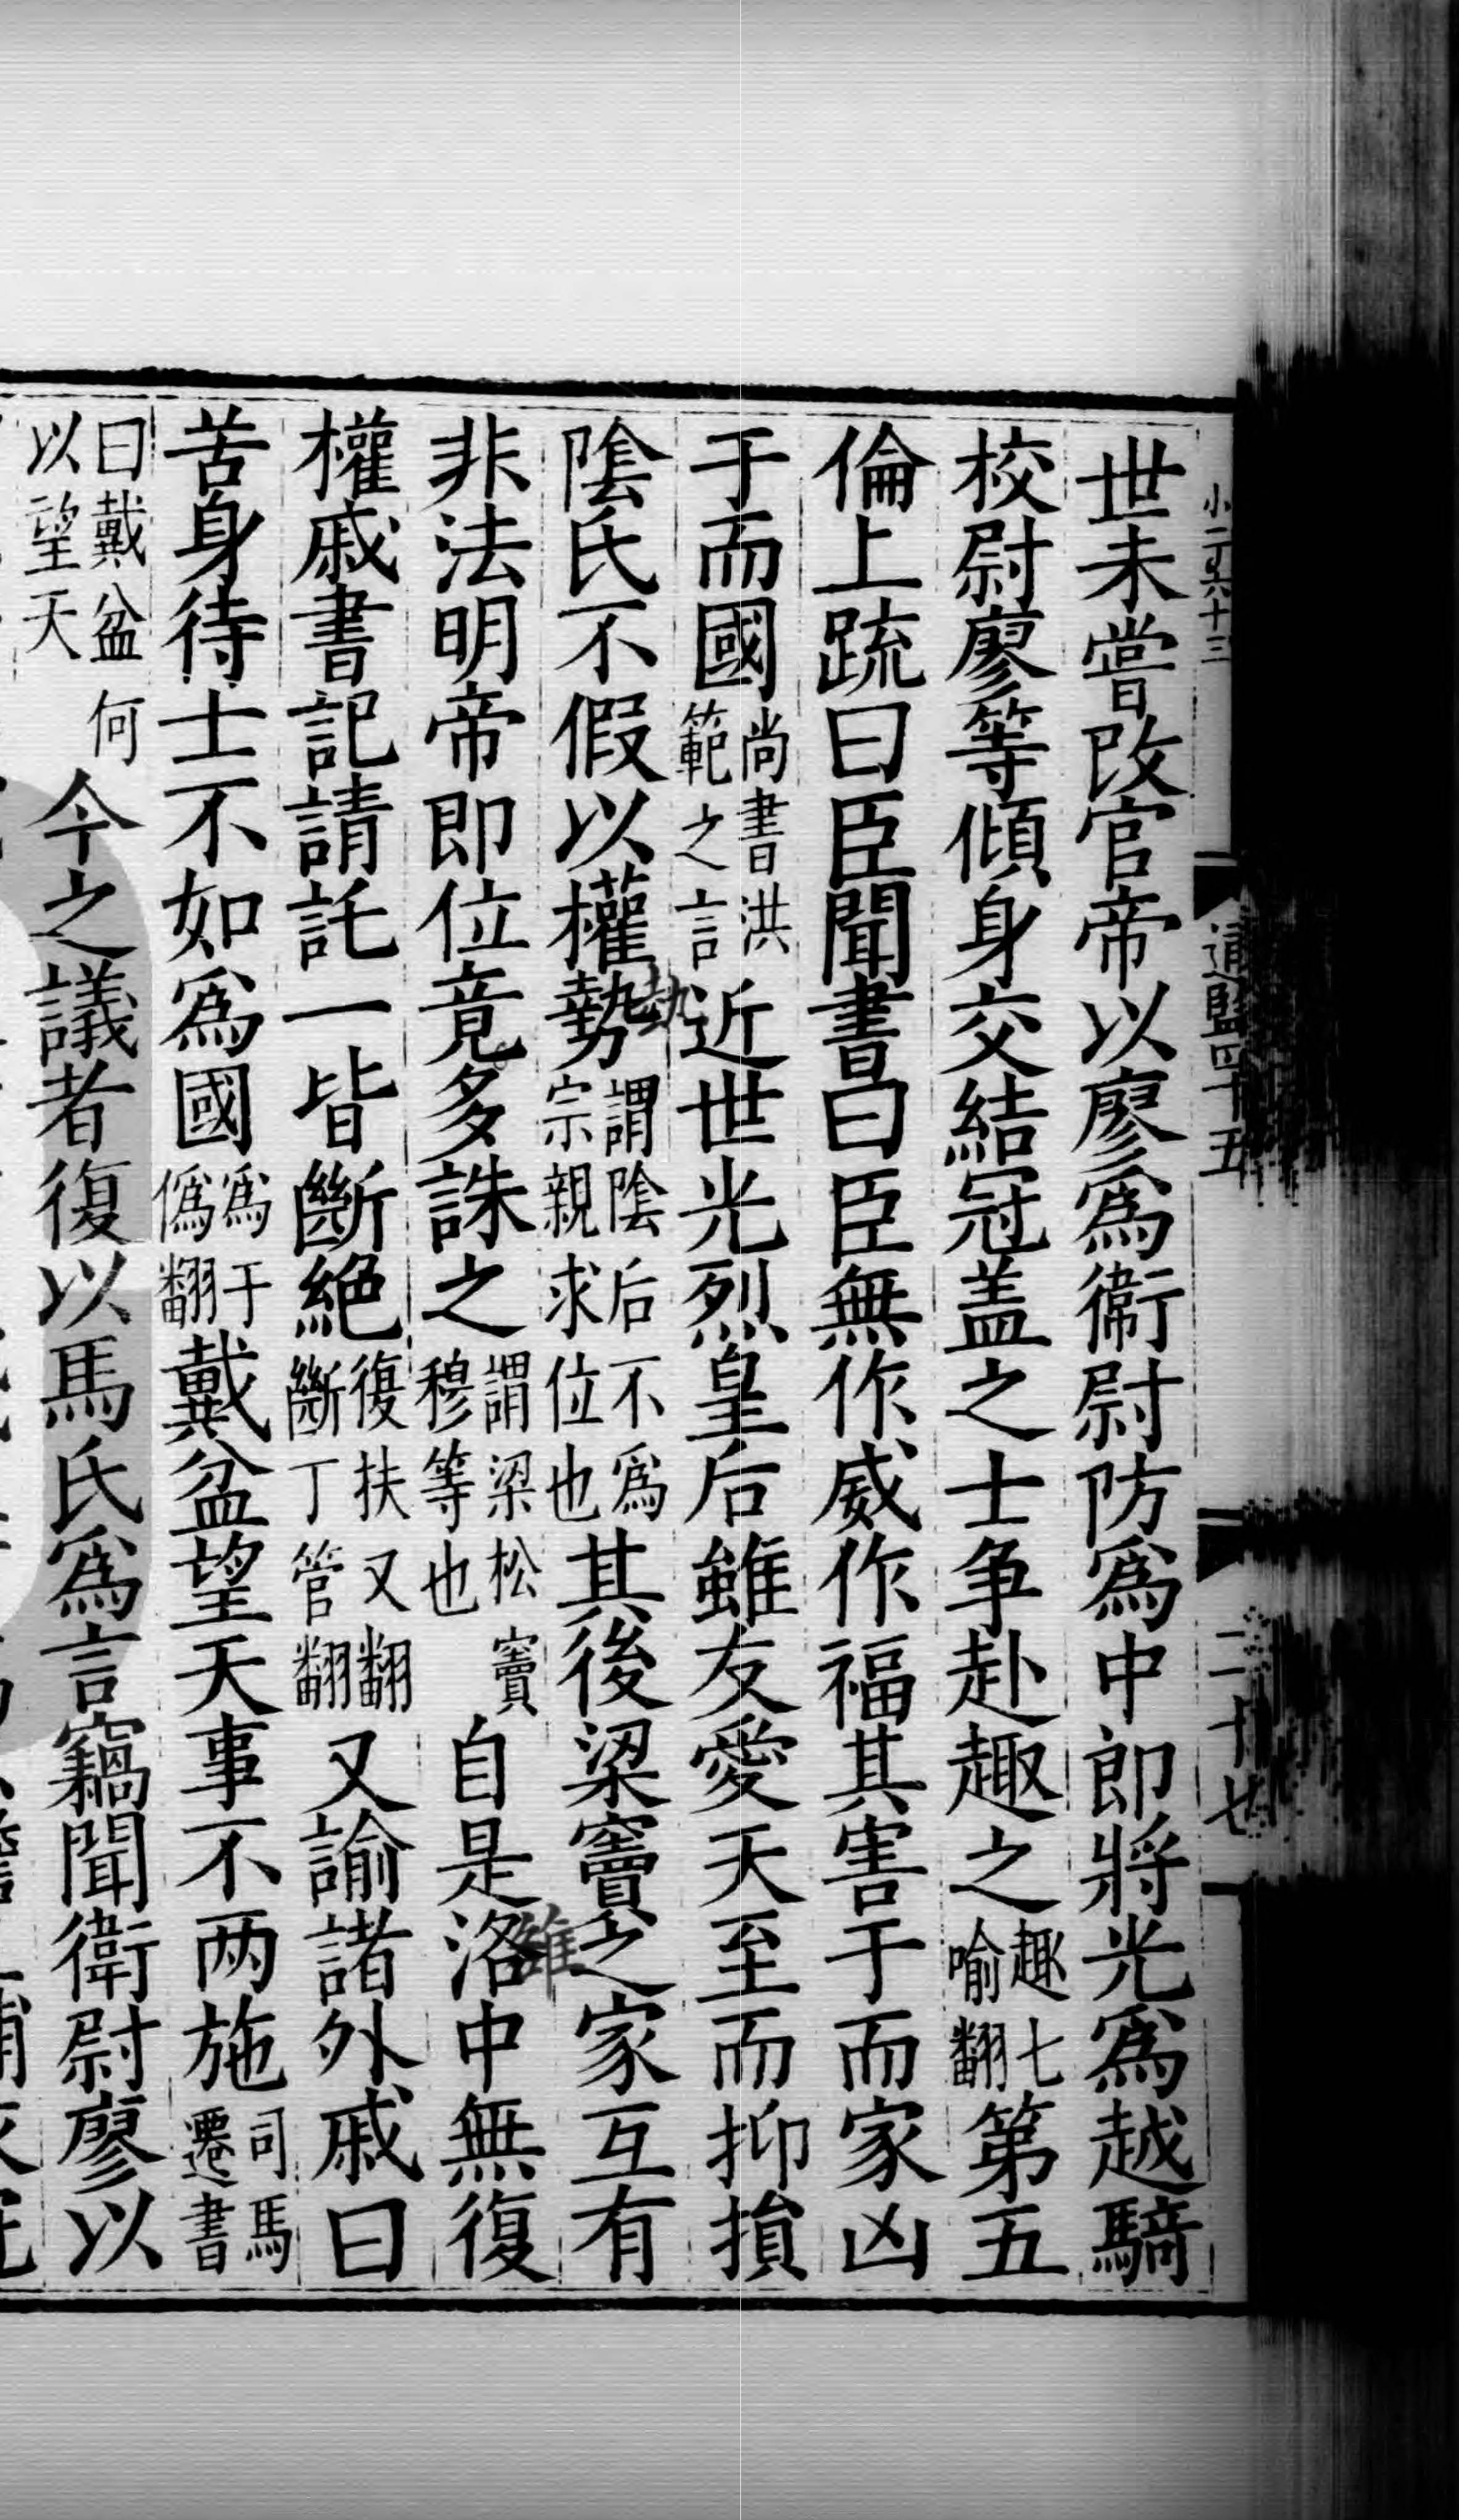 小二百六十三 通鑑四十五 二十七
世未嘗改官帝以廖爲衞尉防爲中郎將光爲越騎
校尉廖等傾身交結冠盖之士争赴趣之趣七喻翻第五
倫上疏曰臣聞書曰臣無作威作福其害于而家凶
于而國尚書洪範之言近世光烈皇后雖友愛天至而抑損
陰氏不假以權勢謂陰后不爲宗親求位也其後梁竇之家互有
非法明帝即位竟多誅之謂梁松竇穆等也自是洛中無復
權戚書記請託一皆斷絶復扶又翻斷丁管翻又諭諸外戚曰
苦身待士不如爲國爲于僞翻戴盆望天事不两施司馬遷書
曰戴盆何以望天今之議者復以馬氏爲言竊聞衛尉廖以